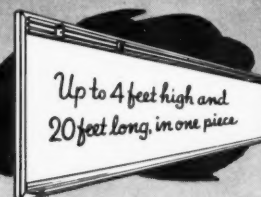 Up to 4 feet high and
20 feet long, in one piece